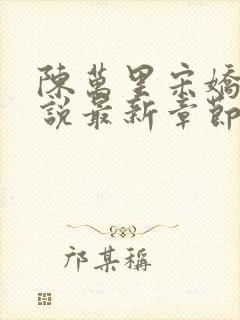 陳萬里宋嬌
說最新章節
邝某稱